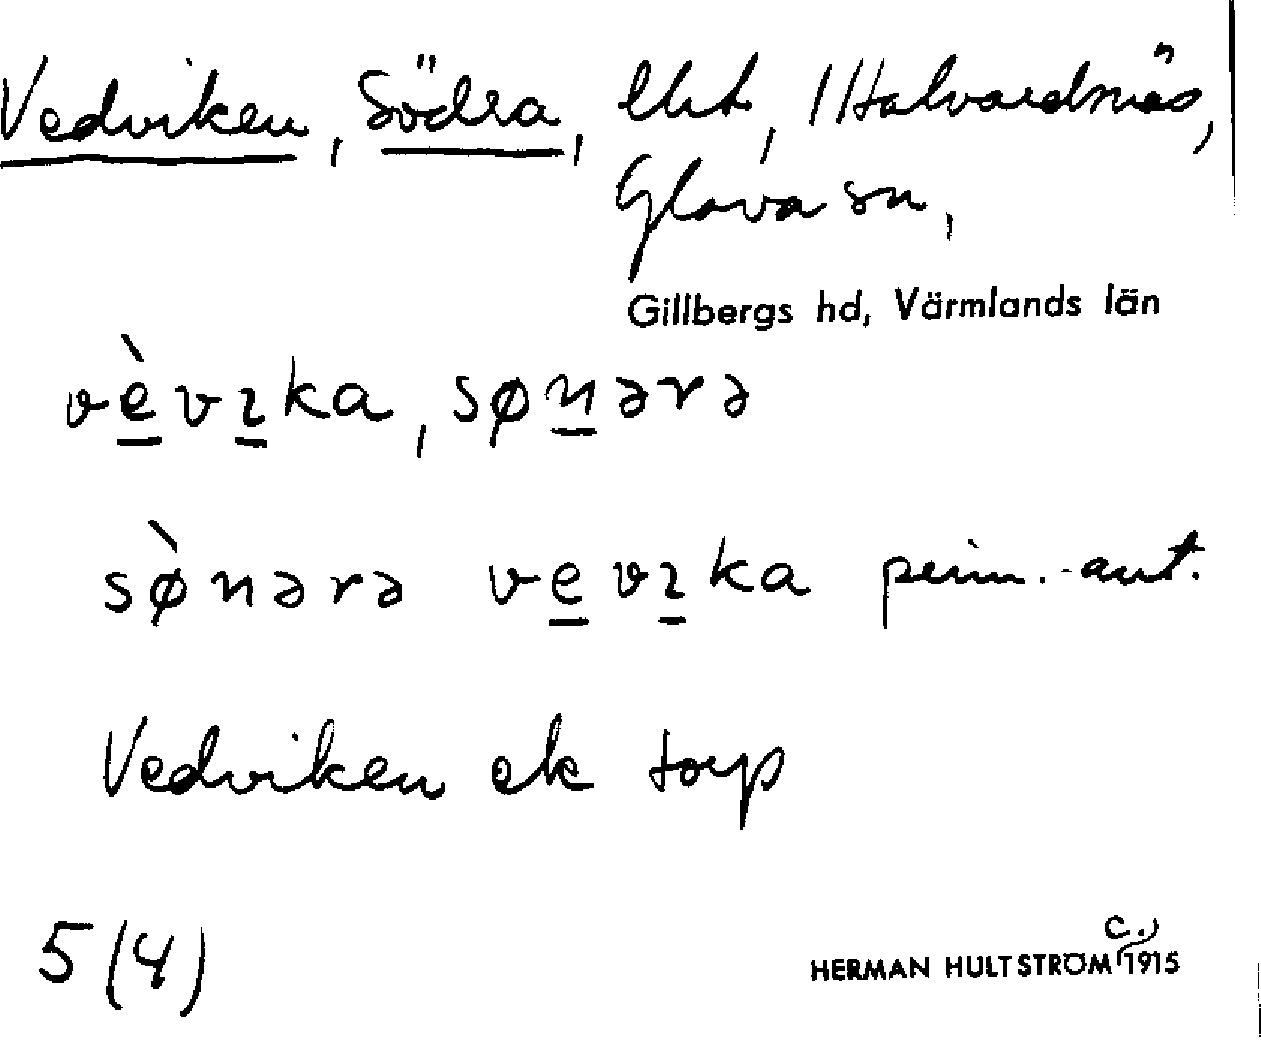 Vedviken, Södra, lht, 1 Halvardnäs,
Glava sn,
Gillbergs hd, Värmlands län
vèvıka, sønərə
sø̀nərə vevıka pers.-ant.
Vedviken ek torp
5 (4)
HERMAN HULTSTRÖM c., 1915